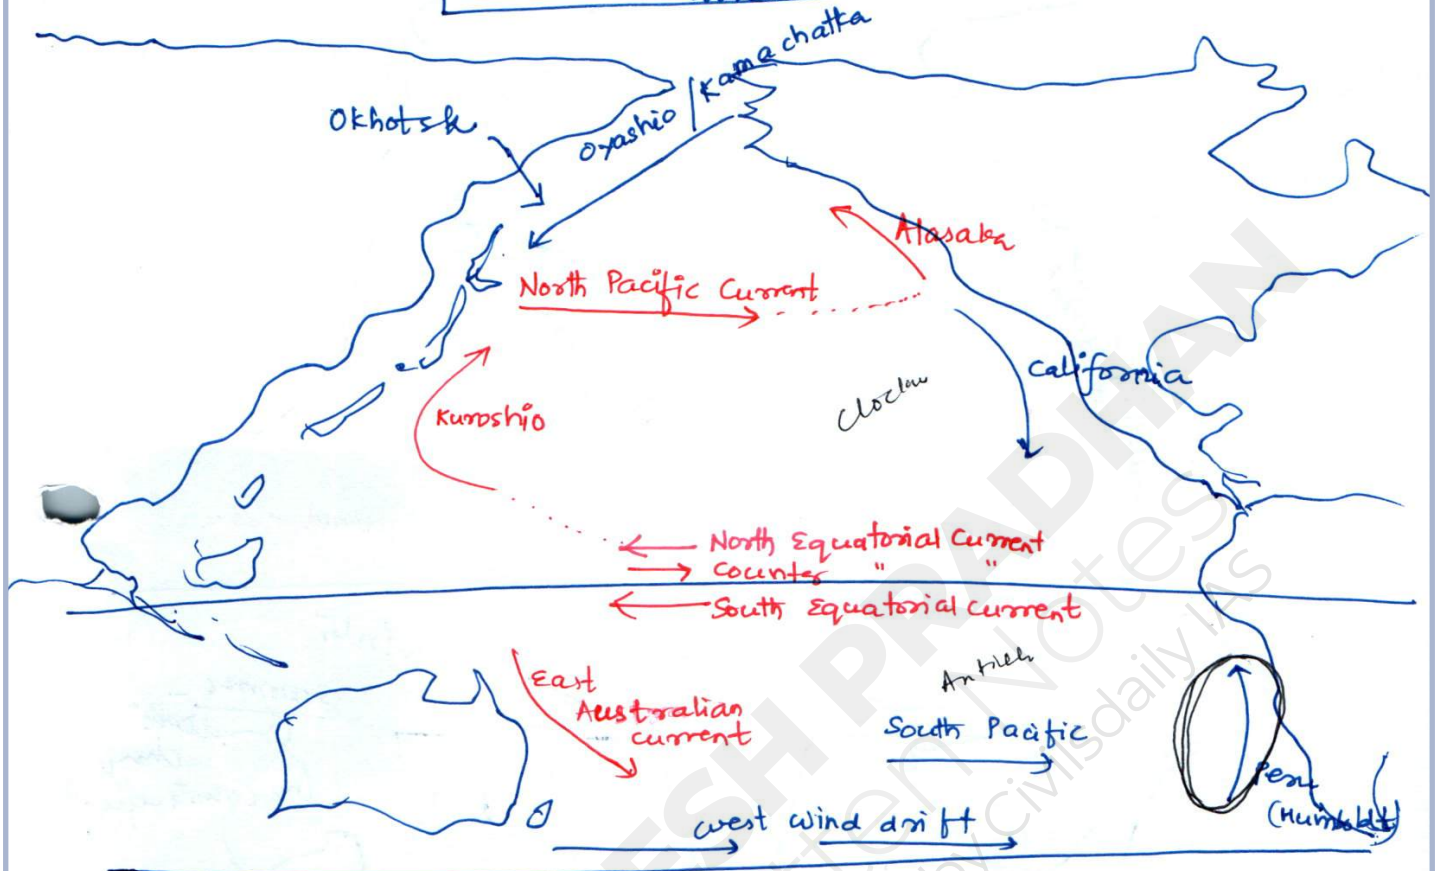 Kamachatka
Oyashio
Okhotsk
Alasaka
North Pacific Current
California
Kuroshio
North Equatorial Current
Counter " "
South Equatorial Current
East
Australian
current
South Pacific
Peru
(Humboldt)
west wind drift
ESH PRADHAN
Notes
by civilsdaily IAS